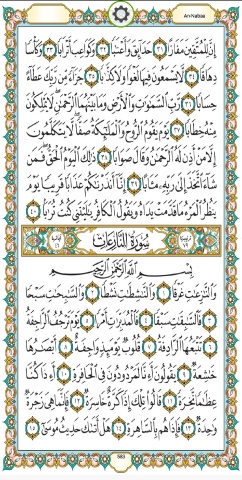 An-Nabaa
إِنَّ لِلْمُتَّقِينَ مَفَازًا ٣١ حَدَائِقَ وَأَعْنَابًا ٣٢ وَكَوَاعِبَ أَتْرَابًا ٣٣ وَكَأْسًا
دِهَاقًا ٣٤ لَا يَسْمَعُونَ فِيهَا لَغْوًا وَلَا كِذَّابًا ٣٥ جَزَاءً مِنْ رَبِّكَ عَطَاءً
حِسَابًا ٣٦ رَبِّ السَّمَوَاتِ وَالْأَرْضِ وَمَا بَيْنَهُمَا الرَّحْمَنِ لَا يَمْلِكُونَ
مِنْهُ خِطَابًا ٣٧ يَوْمَ يَقُومُ الرُّوحُ وَالْمَلَائِكَةُ صَفًّا لَا يَتَكَلَّمُونَ
إِلَّا مَنْ أَذِنَ لَهُ الرَّحْمَنُ وَقَالَ صَوَابًا ٣٨ ذَلِكَ الْيَوْمُ الْحَقُّ فَمَنْ
شَاءَ اتَّخَذَ إِلَى رَبِّهِ مَآبًا ٣٩ إِنَّا أَنْذَرْنَاكُمْ عَذَابًا قَرِيبًا يَوْمَ
يَنْظُرُ الْمَرْءُ مَا قَدَّمَتْ يَدَاهُ وَيَقُولُ الْكَافِرُ يَا لَيْتَنِي كُنْتُ تُرَابًا ٤٠
سُورَةُ النَّازِعَاتِ
بِسْمِ اللَّهِ الرَّحْمَنِ الرَّحِيمِ
وَالنَّازِعَاتِ غَرْقًا ١ وَالنَّاشِطَاتِ نَشْطًا ٢ وَالسَّابِحَاتِ سَبْحًا
٣ فَالسَّابِقَاتِ سَبْقًا ٤ فَالْمُدَبِّرَاتِ أَمْرًا ٥ يَوْمَ تَرْجُفُ الرَّاجِفَةُ
٦ تَتْبَعُهَا الرَّادِفَةُ ٧ قُلُوبٌ يَوْمَئِذٍ وَاجِفَةٌ ٨ أَبْصَارُهَا
خَاشِعَةٌ ٩ يَقُولُونَ أَإِنَّا لَمَرْدُودُونَ فِي الْحَافِرَةِ ١٠ أَإِذَا كُنَّا
عِظَامًا نَخِرَةً ١١ قَالُوا تِلْكَ إِذًا كَرَّةٌ خَاسِرَةٌ ١٢ فَإِنَّمَا هِيَ زَجْرَةٌ
وَاحِدَةٌ ١٣ فَإِذَا هُمْ بِالسَّاهِرَةِ ١٤ هَلْ أَتَاكَ حَدِيثُ مُوسَى ١٥
583